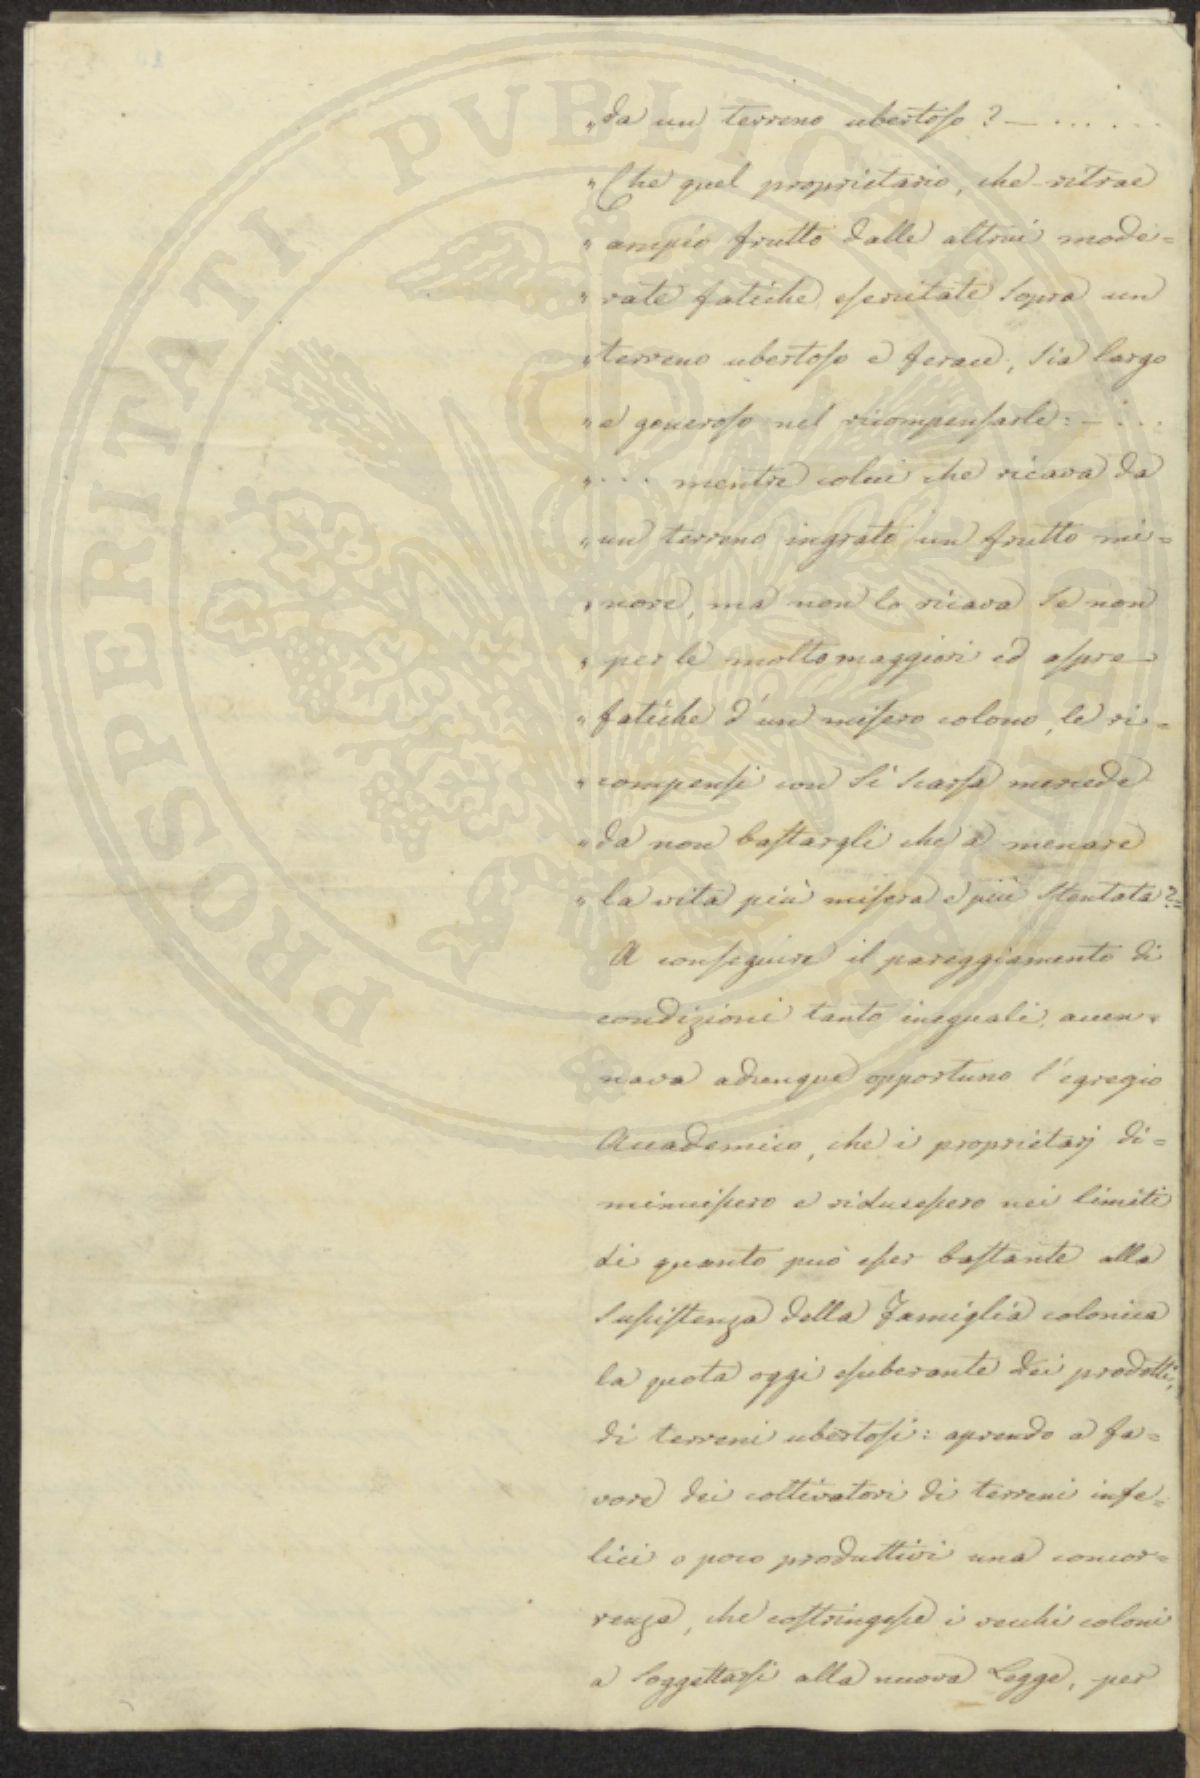 PROSPERITATI PVBLICAE
„da un terreno ubertoso? — . . . . . .
„Che quel proprietario, che ritrae
„ampio frutto dalle altrui mode=
„rate fatiche esercitate sopra un
„terreno ubertoso e ferace, sia largo
„e generoso nel ricompensarle: — . . .
„. . . mentre colui che ricava da
„un terreno ingrato un frutto mi=
„nore, ma non lo ricava se non
„per le molto maggiori ed aspre
„fatiche d'un misero colono, le ri=
„compensi con sì scarsa mercede
„da non bastargli che a menare
„la vita più misera e più stentata?=
A conseguire il pareggiamento di
condizioni tanto ineguali, accen=
nava adunque opportuno l'egregio
Accademico, che i proprietarj di=
minuissero e riducessero nei limiti
di quanto può esser bastante alla
sussistenza della Famiglia colonica
la quota oggi esuberante dei prodotti,
di terreni ubertosi: aprendo a fa=
vore dei coltivatori di terreni infe=
lici o poco produttivi una concor=
renza, che costringesse i vecchi coloni
a soggettarsi alla nuova Legge, per